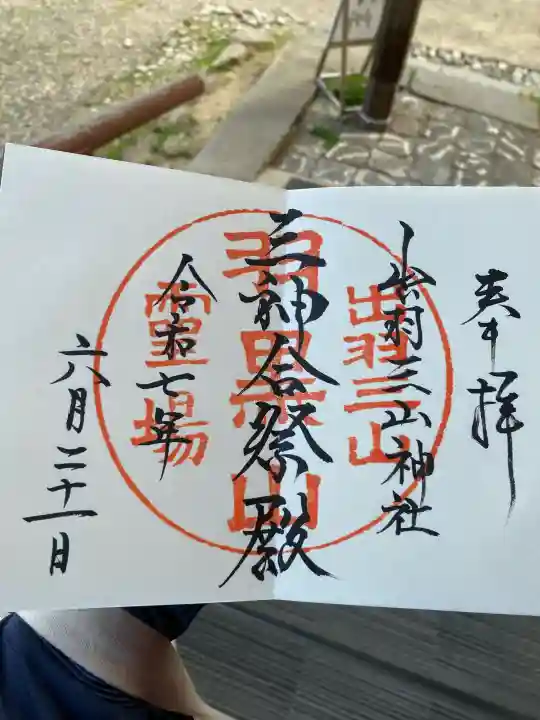 奉拝
出羽三山神社
出羽三山
三神合祭殿
羽黒山
令和七年
霊場
六月二十一日